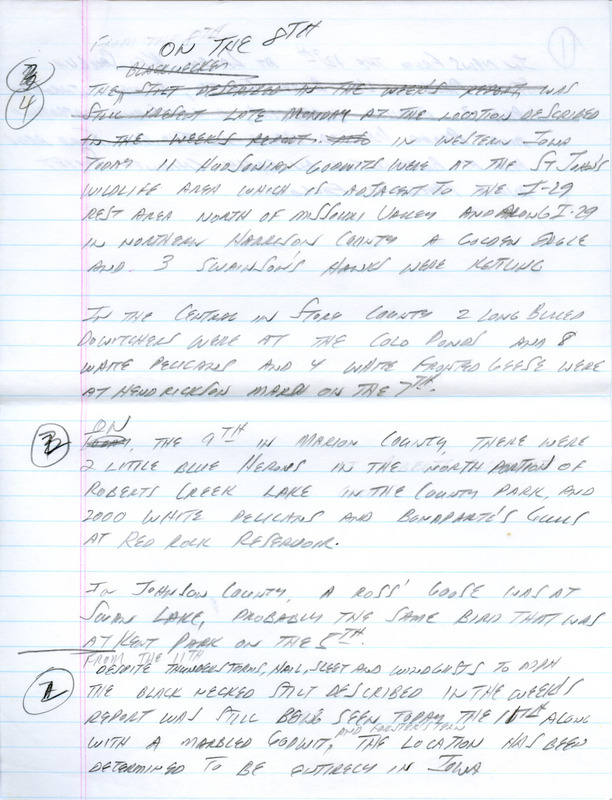 ON THE 8TH
BLACKNECKED
3
4
THE STILT DESCRIBED IN THE WEEK'S REPORT, WAS
STILL PRESENT LATE MONDAY AT THE LOCATION DESCRIBED
IN THE WEEK'S REPORT. IN WESTERN IOWA
TODAY 11 HUDSONIAN GODWITS WERE AT THE ST JOHNS
WILDLIFE AREA WHICH IS ADJACENT TO THE I-29
REST AREA NORTH OF MISSOURI VALLEY AND ALONG I-29
IN NORTHERN HARRISON COUNTY A GOLDEN EAGLE
AND 3 SWAINSON'S HAWKS WERE KETTLING
IN THE CENTRAL IN STORY COUNTY 2 LONG BILLED
DOWITCHERS WERE AT THE COLO PONDS AND 8
WHITE PELICANS AND 4 WHITE FRONTED GEESE WERE
AT HENDRICKSON MARSH ON THE 7TH.
ON
THE 9TH IN MARION COUNTY, THERE WERE
2 LITTLE BLUE HERONS IN THE NORTH PORTION OF
ROBERTS CREEK LAKE IN THE COUNTY PARK, AND
2000 WHITE PELICANS AND BONAPARTE'S GULLS
AT RED ROCK RESERVOIR.
IN JOHNSON COUNTY, A ROSS' GOOSE WAS AT
SWAN LAKE, PROBABLY THE SAME BIRD THAT WAS
AT KENT PARK ON THE 5TH.
FROM THE 11TH
DESPITE THUNDERSTORMS, HAIL, SLEET AND WINDGUSTS TO MPH
THE BLACK NECKED STILT DESCRIBED IN THE WEEKS
REPORT WAS STILL BEING SEEN TODAY THE 11TH ALONG
AND FORSTER'S TERN
WITH A MARBLED GODWIT, THE LOCATION HAS BEEN
DETERMINED TO BE ENTIRELY IN IOWA